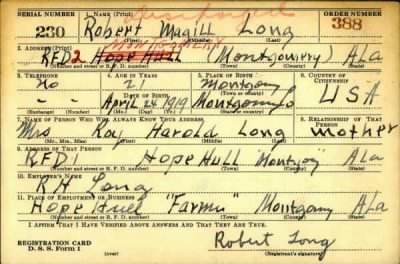 SERIAL NUMBER 1. NAME (Print) ORDER NUMBER
230 Robert Magill Long 388
(First) (Middle) (Last)
MONTGOMERY
2. ADDRESS (Print)
RFD2 Hope Hull (Montgomery) ALa
(Number and street or R. F. D. number) (Town) (County) (State)
3. TELEPHONE 4. AGE IN YEARS 5. PLACE OF BIRTH 6. COUNTRY OF CITIZENSHIP
No 21 Montgomy
DATE OF BIRTH (Town or county)
- - April 24 1919 Montgomy U S A
(Exchange) (Number) (Mo.) (Day) (Yr.) (State or country)
7. NAME OF PERSON WHO WILL ALWAYS KNOW YOUR ADDRESS 8. RELATIONSHIP OF THAT PERSON
Mrs Roy Harold Long mother
(Mr., Mrs., Miss) (First) (Middle) (Last)
9. ADDRESS OF THAT PERSON
RFD1 Hope Hull Montgoy ALa
(Number and street or R. F. D. number) (Town) (County) (State)
10. EMPLOYER'S NAME
R H Long
11. PLACE OF EMPLOYMENT OR BUSINESS
Hope Hull "Farmer" Montgomy ALa
(Number and street or R. F. D. number) (Town) (County) (State)
I AFFIRM THAT I HAVE VERIFIED ABOVE ANSWERS AND THAT THEY ARE TRUE.
REGISTRATION CARD
D. S. S. Form 1
Robert Long
(Registrant's signature)